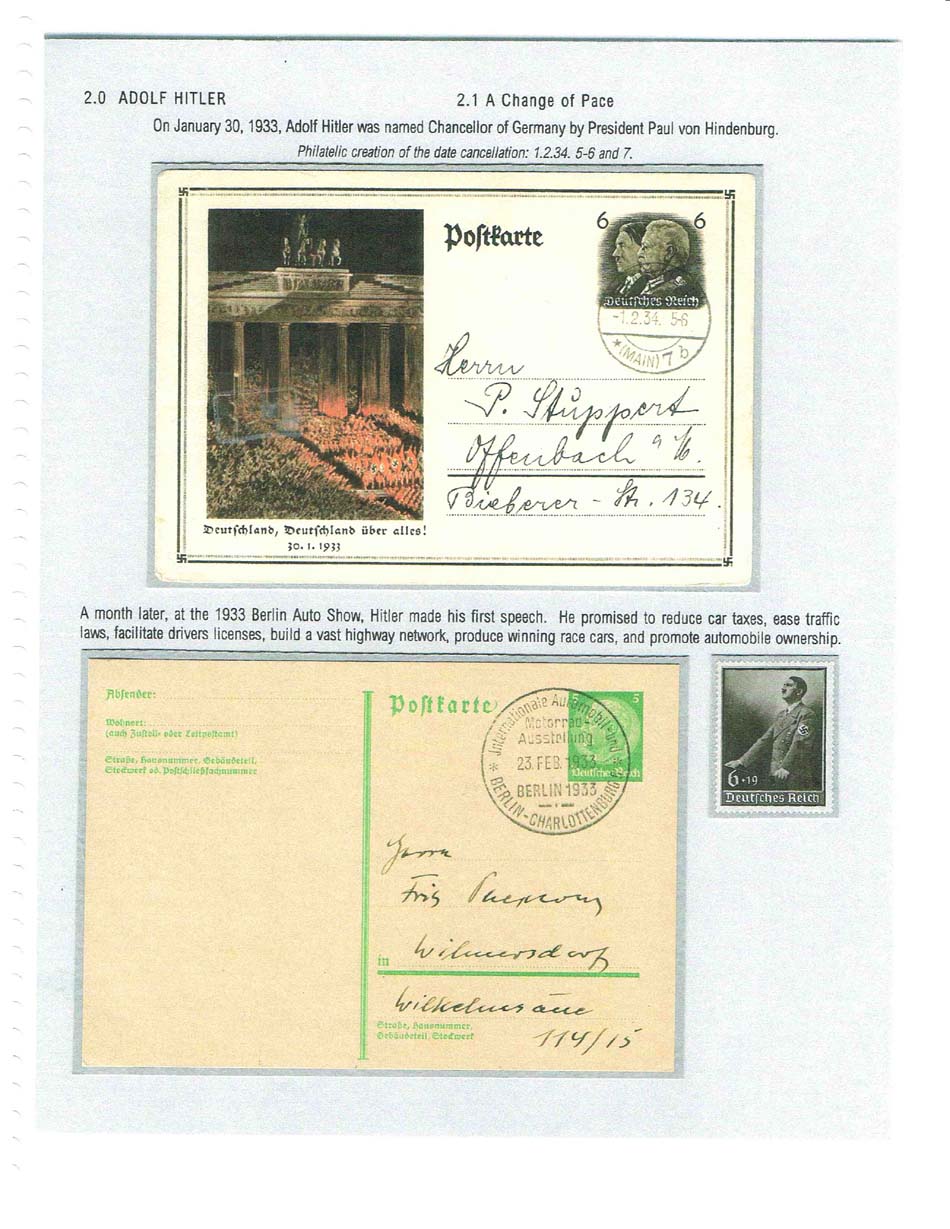 2.0 ADOLF HITLER
2.1 A Change of Pace
On January 30, 1933, Adolf Hitler was named Chancellor of Germany by President Paul von Hindenburg.
Philatelic creation of the date cancellation: 1.2.34. 5-6 and 7.
Postkarte
6 6
Deutsches Reich
-1.2.34. 5-6
* (MAIN) 7 b
Herrn
P. Stüppert
Offenbach a/M.
Bieberer - Str. 134.
Deutschland, Deutschland über alles!
30.1.1933
A month later, at the 1933 Berlin Auto Show, Hitler made his first speech. He promised to reduce car taxes, ease traffic
laws, facilitate drivers licenses, build a vast highway network, produce winning race cars, and promote automobile ownership.
Absender:
Wohnort:
(auch Zustell- oder Leitpostamt)
Straße, Hausnummer, Gebäudeteil,
Stockwerk od. Postschließfachnummer
Postkarte
5 5
Deutsches Reich
Internationale Automobil- und
Motorrad-
Ausstellung
23. FEB. 1933
BERLIN 1933
* BERLIN-CHARLOTTENBURG *
6+19
Deutsches Reich
Herrn
Fritz
in Wilmersdorf
Wilhelmsaue
Straße, Hausnummer,
Gebäudeteil, Stockwerk
114/15